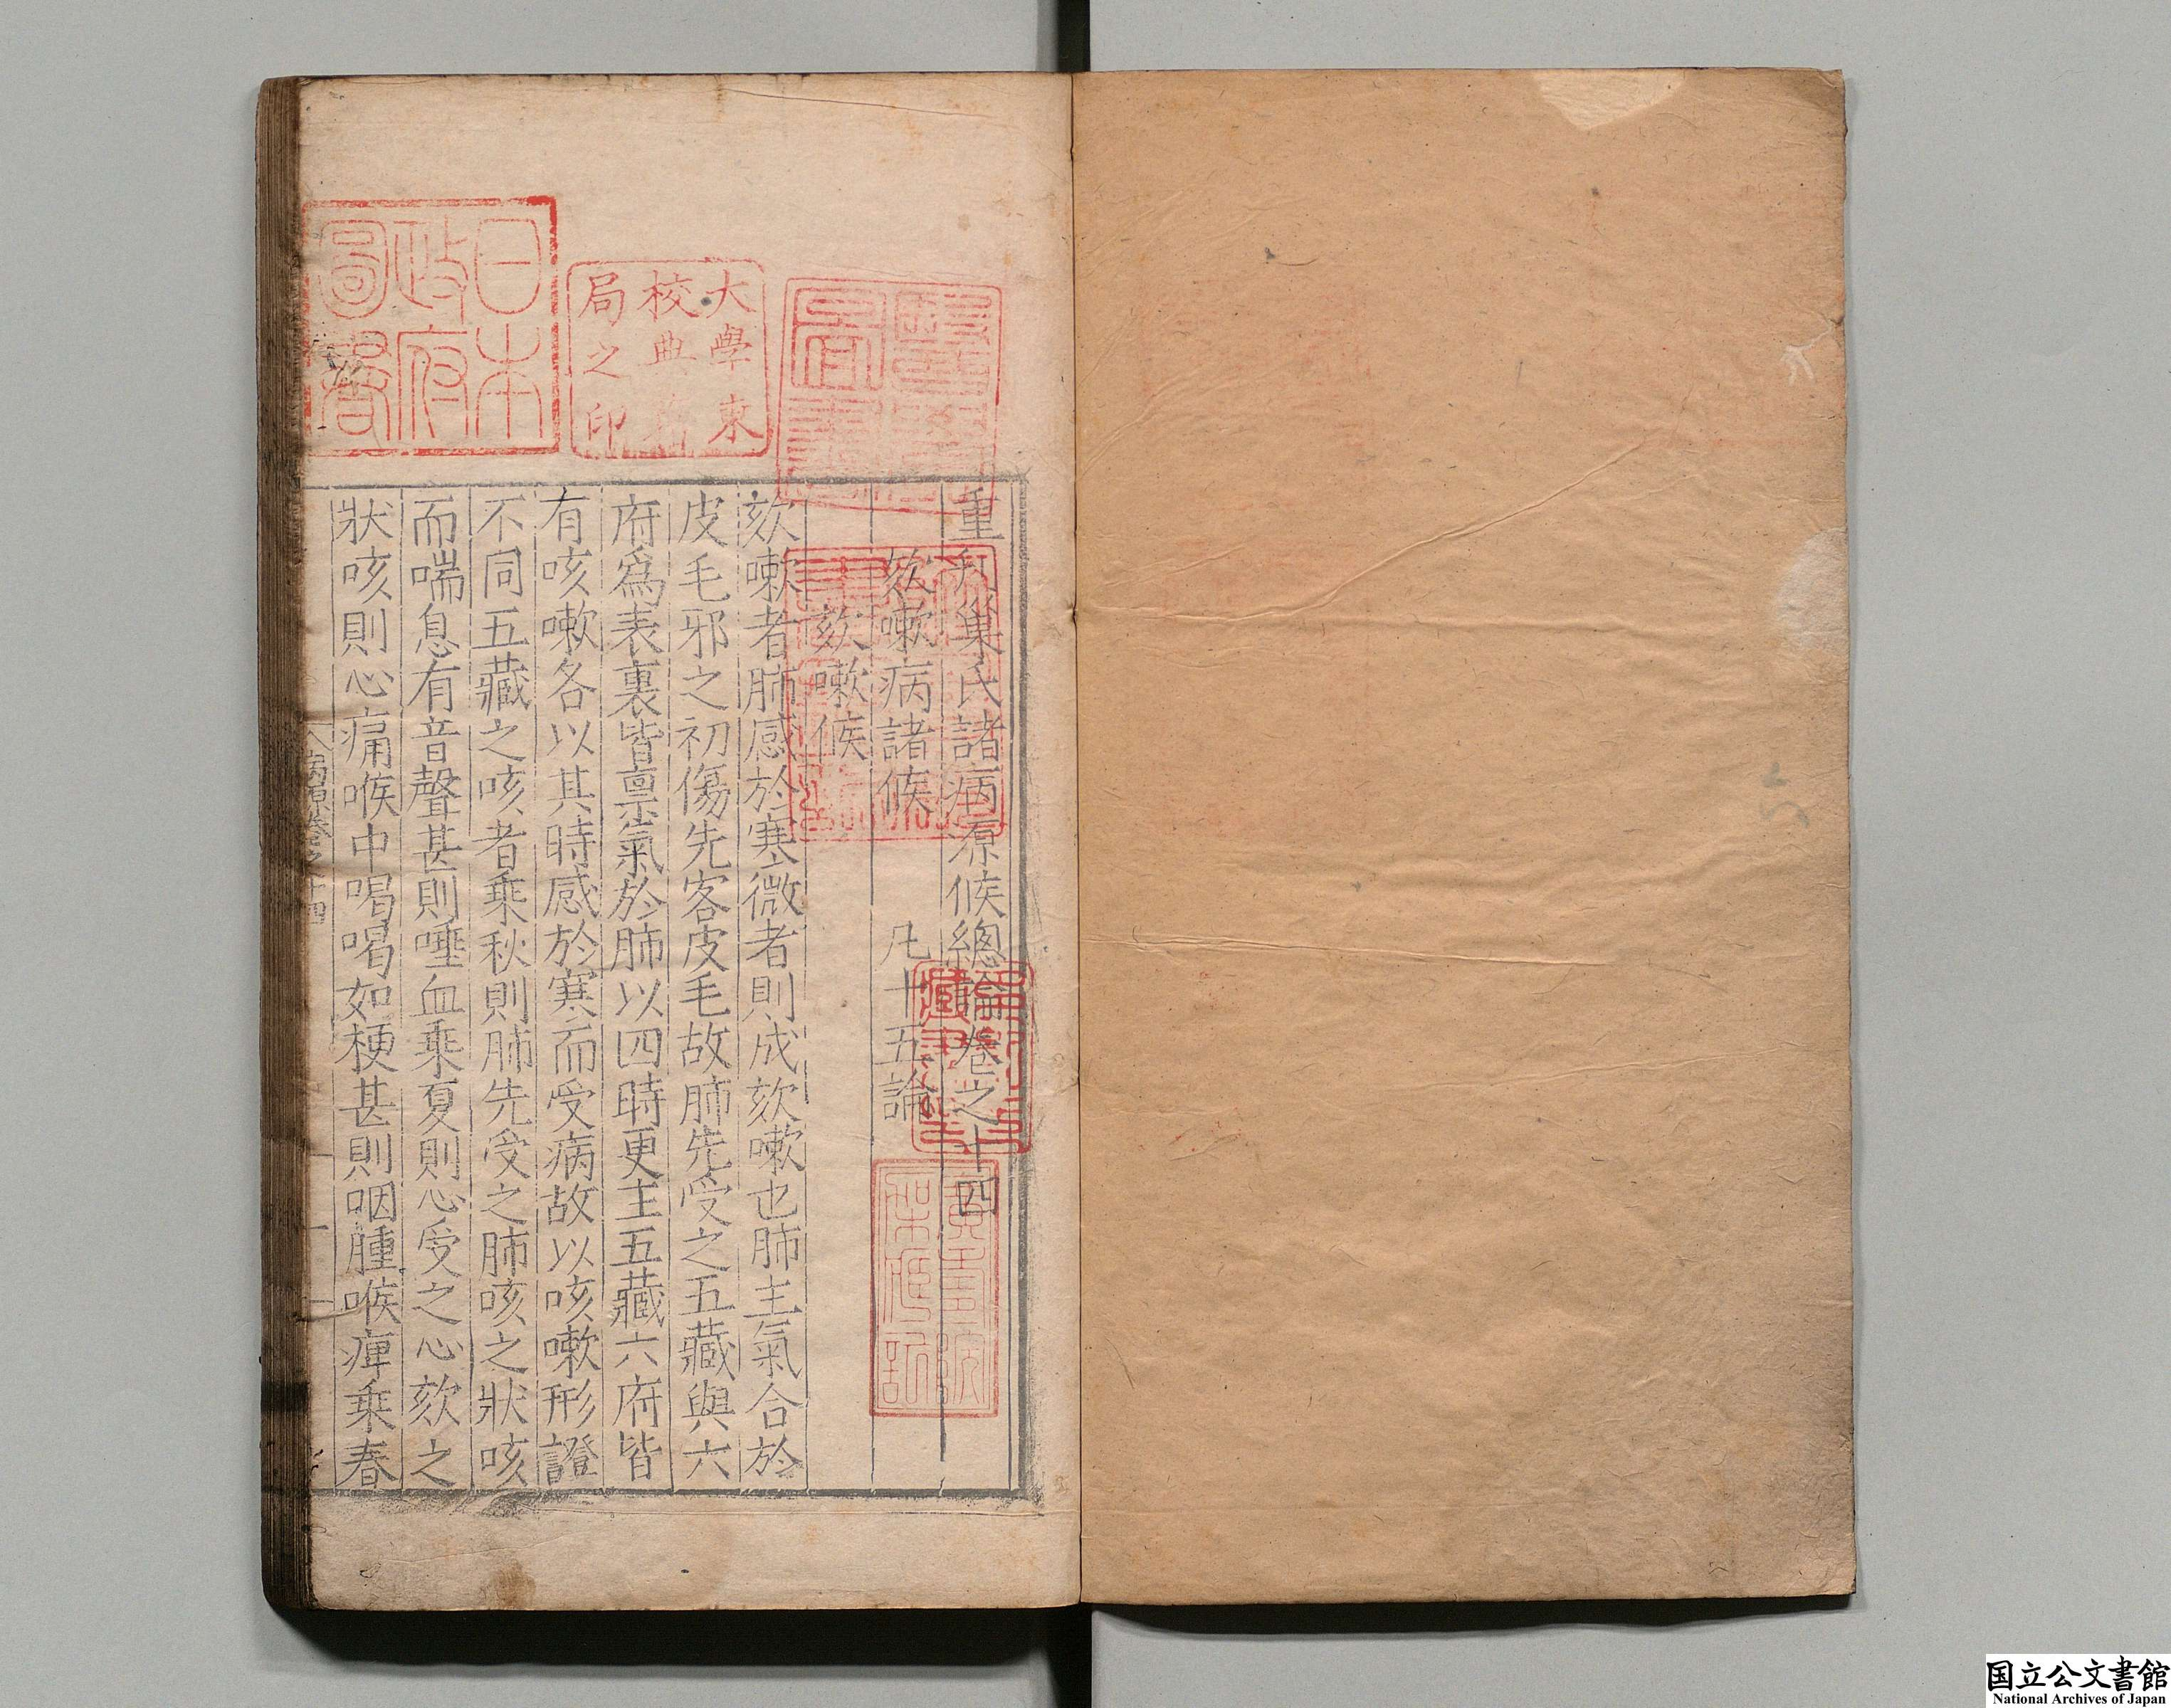 重刊巢氏諸病源候總論卷之十四
欬嗽病諸候 凡十五論
欬嗽候
欬嗽者肺感於寒微者則成欬嗽也肺主氣合於
皮毛邪之初傷先客皮毛故肺先受之五藏與六
府爲表裏皆禀氣於肺以四時更主五藏六府皆
有咳嗽各以其時感於寒而受病故以咳嗽形證
不同五藏之咳者乘秋則肺先受之肺咳之狀咳
而喘息有音聲甚則唾血乘夏則心受之心欬之
狀咳則心痛喉中喝喝如梗甚則咽腫喉痺乘春
大學東
校典籍
局之印
日本
政府
圖書
国立公文書館
National Archives of Japan